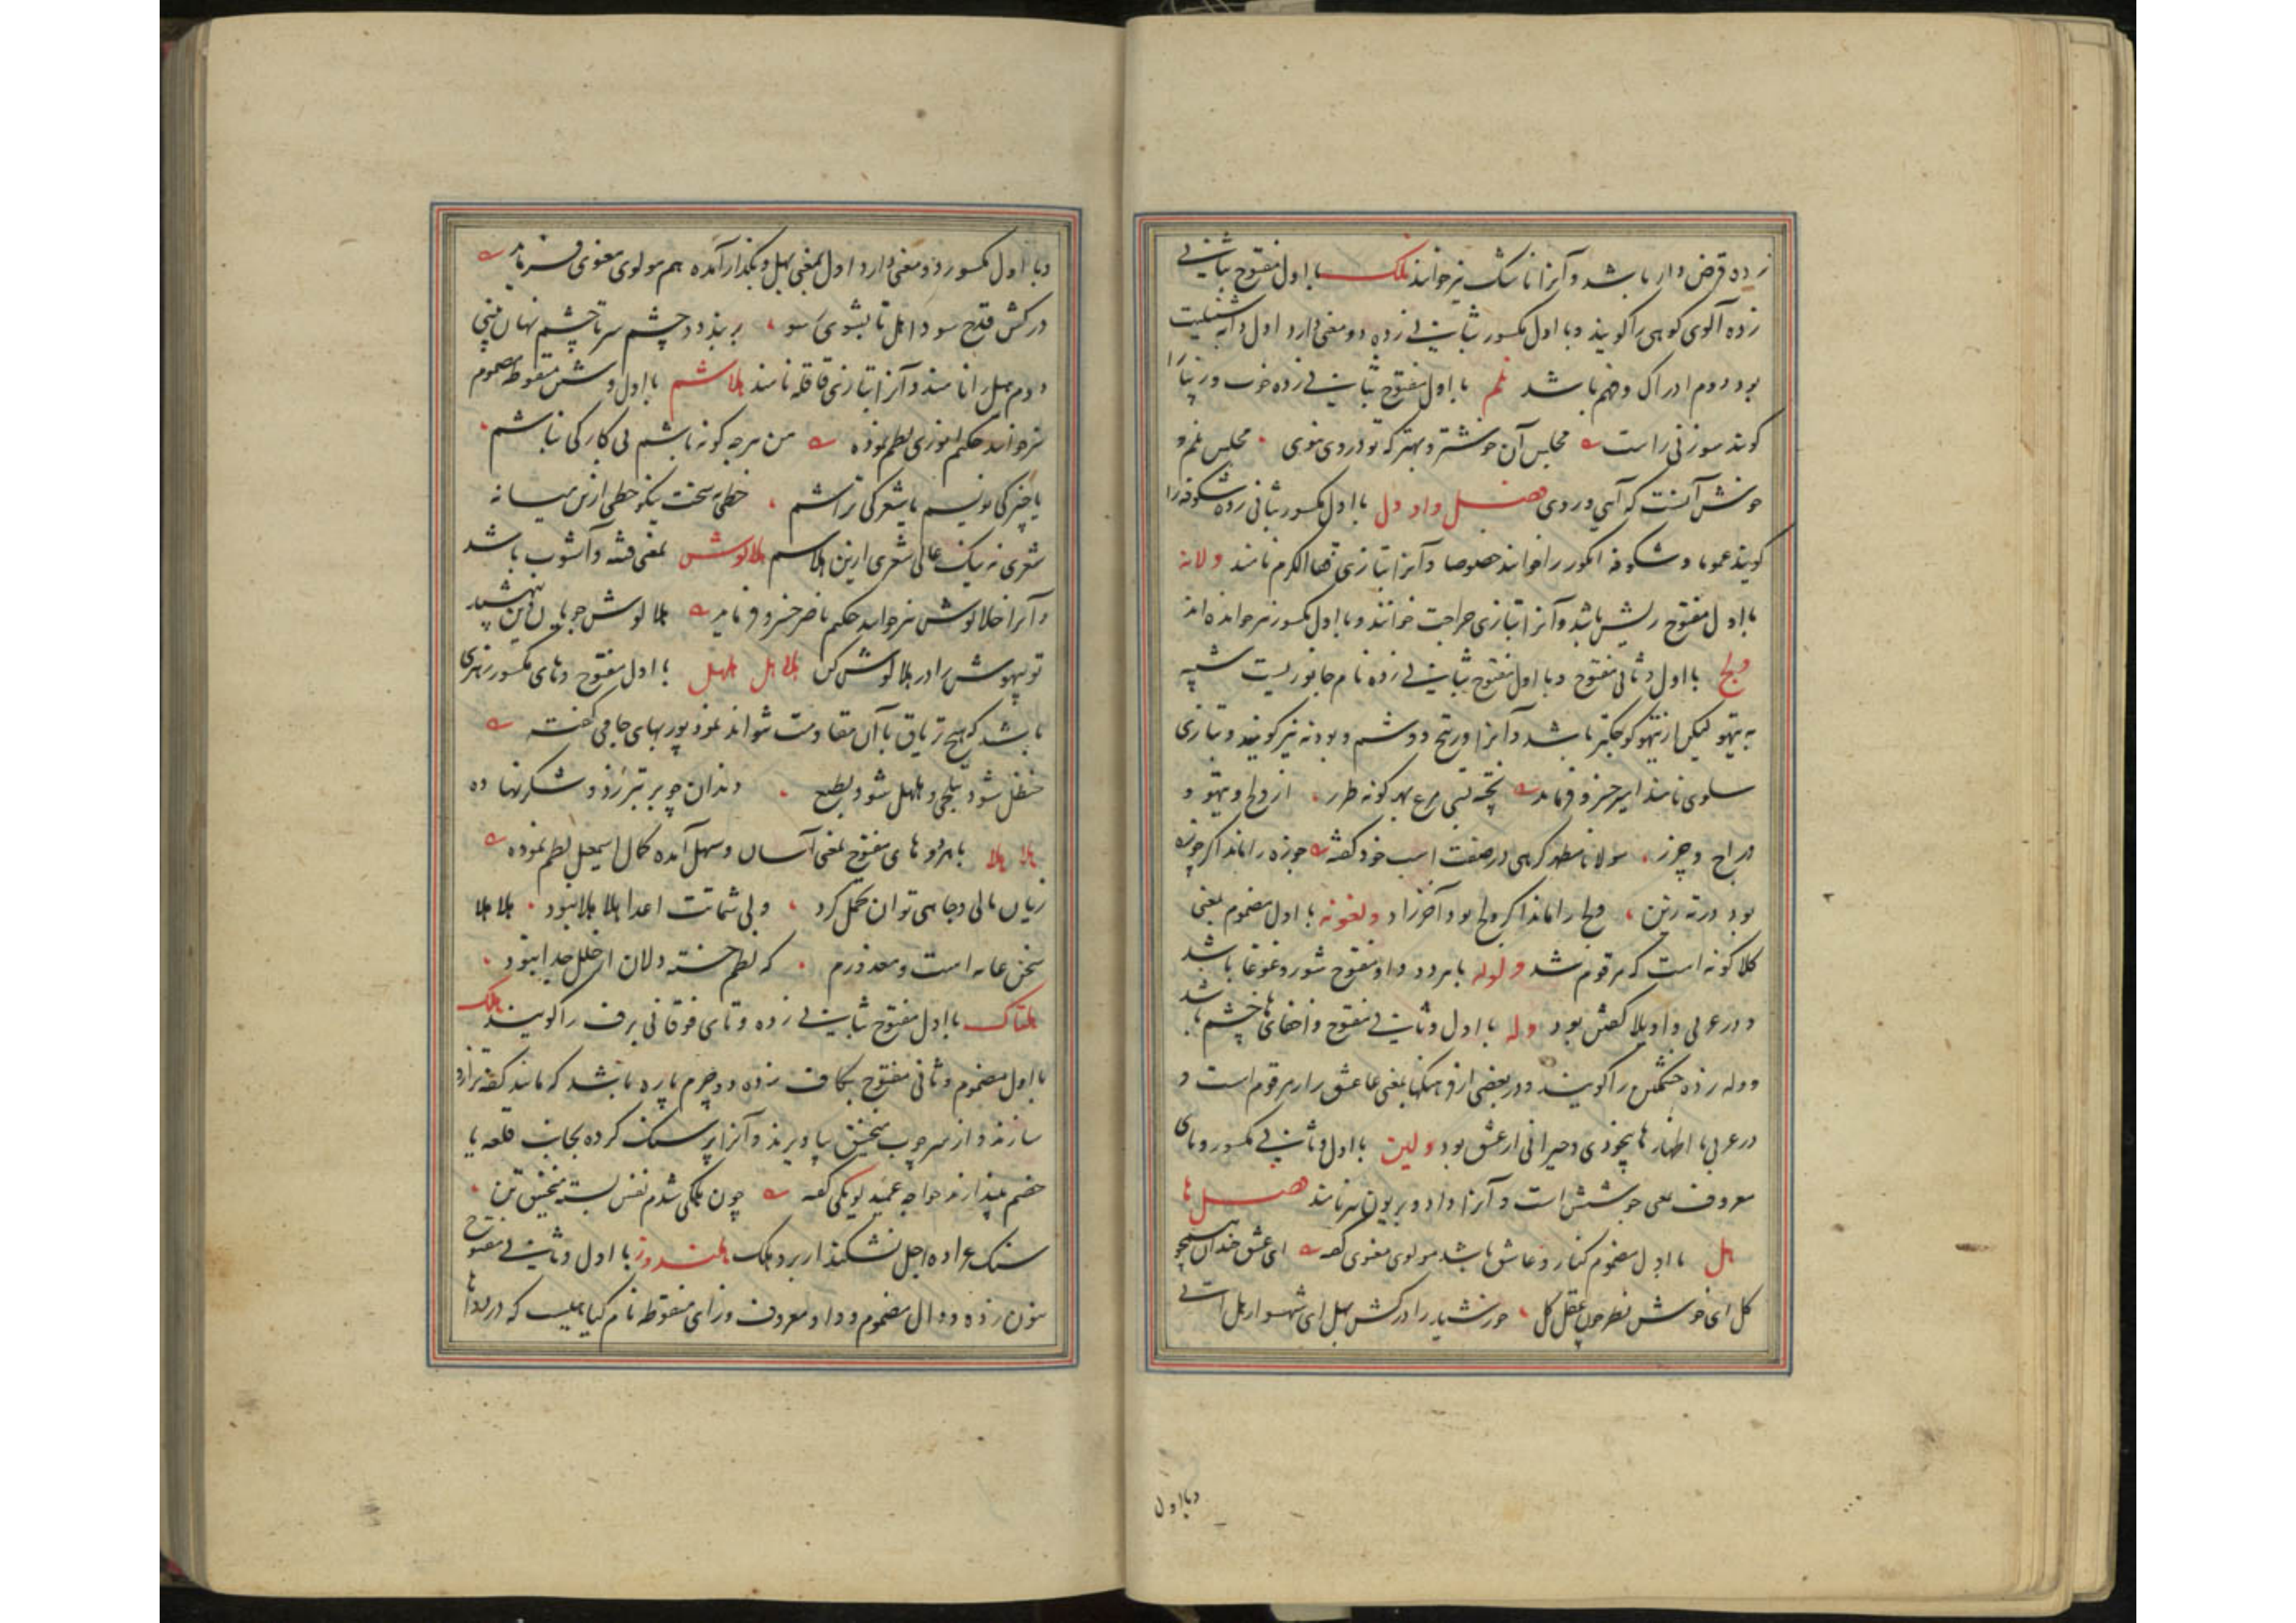 زده قرض دار باشد و آنرا ناسک نیز خوانند نلک با اول مفتوح بثانی
زده آلوی کوهی را کویند و با اول مکسور بثانی زده دو معنی دارد اول
بود دوم ادراک و فهم باشد نلم با اول مفتوح بثانی زده خوب و زیبا را
کویند سوزنی راست مجلس آن خوشتر و بهتر که تو در وی بوی مجلس نلم و
خوش آنست که آیی در وی فصل واو ول با اول مکسور بثانی زده شکوفه را
کویند عموما و شکوفه انکور را خوانند خصوصا و آنرا بتازی فقاالکرم نامند ولانه
با اول مفتوح ریش باشد و آنرا بتازی جراحت خوانند و با اول مکسور نیز خوانده اند
ولج با اول و ثانی مفتوح و با اول مفتوح بثانی زده نام جانوریست شبیه
به تیهو لیکن از تیهو کوچکتر باشد و آنرا ورتج و وشم و بودنه نیز کویند و بتازی
سلوی نامند امیر خسرو فرماید پخته بسی مرغ بهر کونه طرز از ولج و تیهو و
دراج و چرز مولانا مظهر کرهی در صفت اسب خود کفته جوزه را ماند اکر جوزه
بود در ته زین ولج را ماند اکر ولج بود آخر زاد ولغونه با اول مضموم بمعنی
کلاکونه است که مرقوم شد ولوله با هر دو واو مفتوح شور و غوغا باشد
و در عربی واویلا کفتن بود وله با اول و ثانی مفتوح و اخفای ها خشم باشد
و وله زده خشمکین را کویند و در بعضی از فرهنکها بمعنی عاشق زار مرقوم است و
در عربی با اظهار ها بیخودی و حیرانی از عشق بود ولین با اول و ثانی مکسور و یای
معروف بمعنی جوشش است و آنرا نیز نامند فصل ها
هل با اول مضموم کنار و عاشق باشد مولوی معنوی کفته ای عشق خندان همچو
کل ای خوش نظر چون عقل کل خورشید را درکش بهل ای شهسوار هل اتی
و با اول
و با اول مکسور دو معنی دارد اول بمعنی بهل و بکذار آمده هم مولوی معنوی فرماید
درکش قدح سودا هل تا بشوی سو بربند دو چشم سر تا چشم نهان بینی
دوم هیل را نامند و آنرا بتازی قاقله نامند هلاشم با اول و شین منقوطه مضموم
نیز خوانند حکیم نظم نموده من هرچه کونه باشم بی کار کی نباشم
یا چیزکی نویسم یا شعرکی تراشم خطی نه سخت نیکو خطی ازین میانه
شعری نه نیک عالی شعری ازین هلاشم هلالوش بمعنی فتنه و آشوب باشد
و آنرا خلالوش نیز خوانند حکیم ناصر خسرو فرماید هلالوش
تو بیهوش را در هلالوش کن هلاهل هلهل با اول مفتوح و های مکسور زهری
باشد که هیچ تریاق با آن مقاومت نتواند نمود پوربهای جامی کفته
حنظل شود بتلخی و هلهل شود بطبع دندان چو بر تبرزد و شکر نهاده
هلا هلا با هر دو های مفتوح بمعنی آسان و سهل آمده کمال اسمعیل نظم نموده
زیان مالی و جاهی توان تحمل کرد ولی شماتت اعدا هلا هلا نبود هلا هلا
سخن عامه است و معذورم که نظم خسته دلان از خلل جدا نبود
هلتاک با اول مفتوح بثانی زده و تای فوقانی برف را کویند هلک
با اول مضموم و ثانی مفتوح بکاف زده دو چرم پاره باشد که مانند کفه ترازو
سازند و از سر چوب منجنیق بیاویزند و آنرا پر سنک کرده بجانب قلعه یا
خصم بیندازند خواجه عمید لویکی کفته چون هلکی شدم نفس بسته منجنیق تن
سنک عراده اجل نشکند هلک هلندوز با اول و ثانی مفتوح
بنون زده و دال مضموم و واو معروف و زای منقوطه نام کیاهیست که در دواها